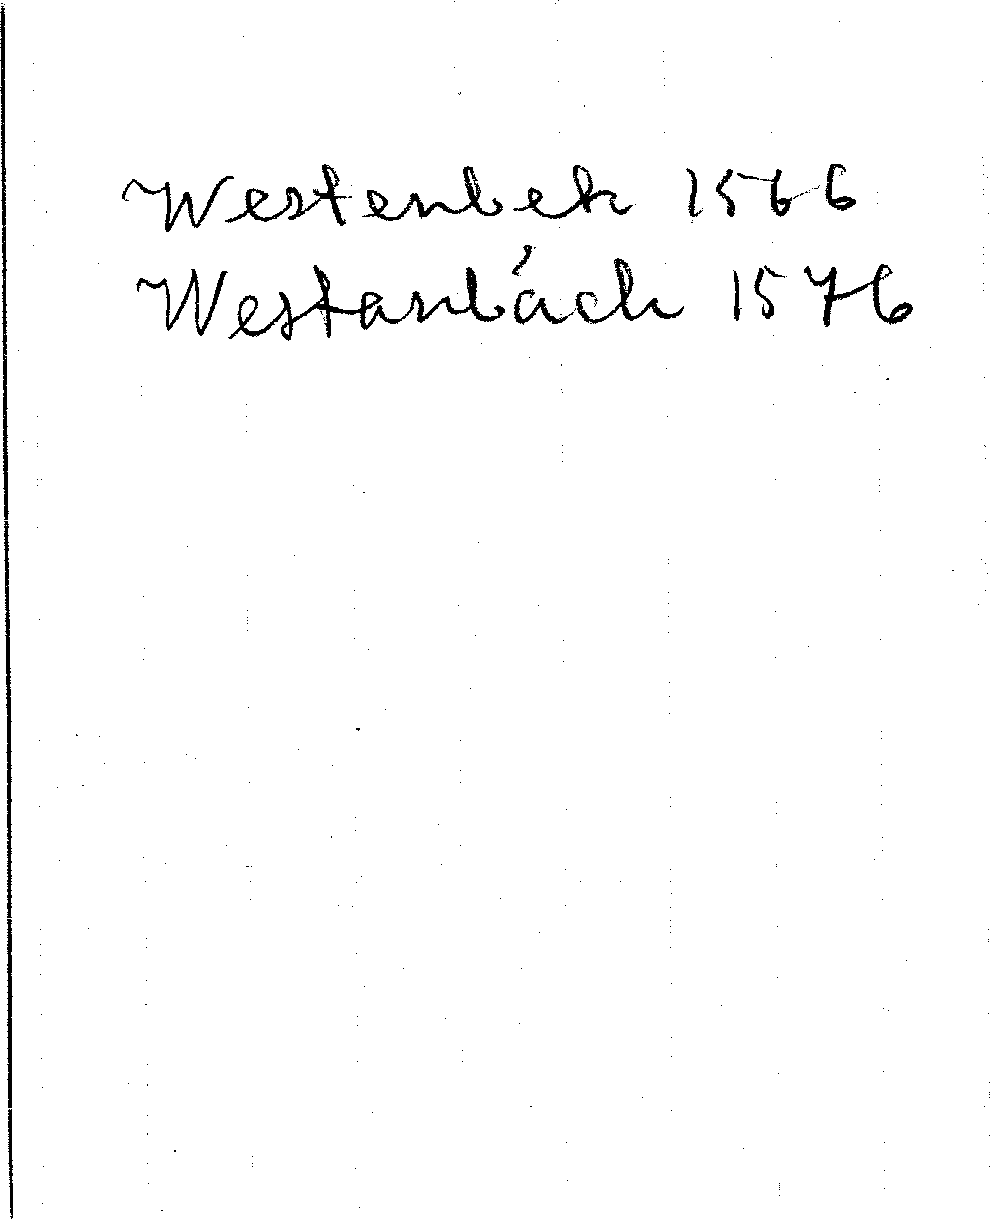 Westenbek 1566
Westanbách 1576